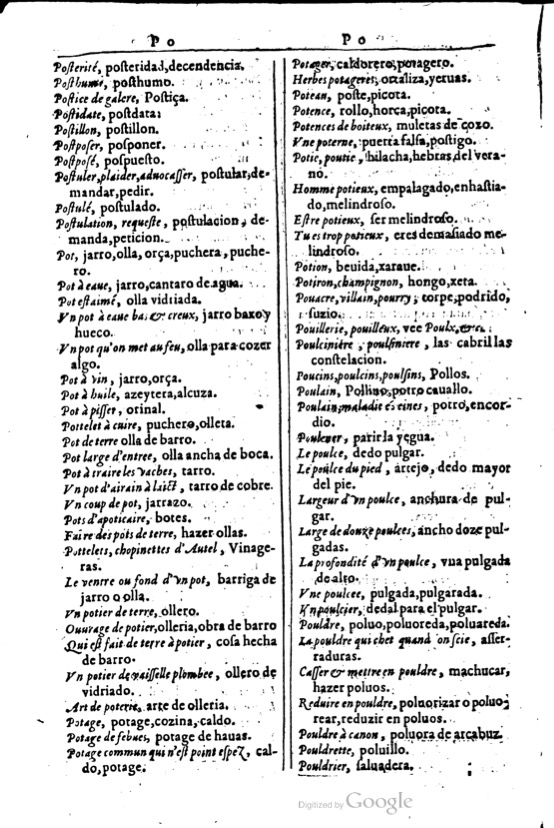 Po
Posterité, posteridad, decendencia.
Posthume, posthumo.
Postice de galere, Postiça.
Postidate, postdata.
Postillon, postillon.
Postposer, posponer.
Postposé, pospuesto.
Postuler, plaider, aduocasser, postular, de-
mandar, pedir.
Postulé, postulado.
Postulation, requeste, postulacion, de-
manda, peticion.
Pot, jarro, olla, orça, puchera, puche-
ro.
Pot à eaue, jarro, cantaro de agua.
Pot estaimé, olla vidriada.
Vn pot à eaue bas & creux, jarro baxo y
hueco.
Vn pot qu'on met au feu, olla para cozer
algo.
Pot à vin, jarro, orça.
Pot à huile, azeytera, alcuza.
Pot à pisser, orinal.
Pottelet à cuire, puchero, olleta.
Pot de terre olla de barro.
Pot large d'entree, olla ancha de boca.
Pot à traire les vaches, tarro.
Vn pot d'airain à laict, tarro de cobre.
Vn coup de pot, jarrazo.
Pots d'apoticaire, botes.
Faire des pots de terre, hazer ollas.
Pottelets, chopinettes d'Autel, Vinage-
ras.
Le ventre ou fond d'vn pot, barriga de
jarro o olla.
Vn potier de terre, ollero.
Ouurage de potier, olleria, obra de barro
Qui est fait de terre à potier, cosa hecha
de barro.
Vn potier de vaisselle plombee, ollero de
vidriado.
Art de poterie, arte de olleria.
Potage, potage, cozina, caldo.
Potage de febues, potage de hauas.
Potage commun qui n'est point espez, cal-
do, potage.
Po
Potager, caldorero, potagero.
Herbes potageres, ortaliza, yeruas.
Poteau, poste, picota.
Potence, rollo, horca, picota.
Potences de boiteux, muletas de coxo.
Vne poterne, puerta falsa, postigo.
Potie, poutie, hilacha, hebras del vera-
no.
Homme potieux, empalagado, enhastia-
do, melindroso.
Estre potieux, ser melindroso.
Tu es trop potieux, eres demasiado me-
lindroso.
Potion, beuida, xaraue.
Potiron, champignon, hongo, xeta.
Pouacre, villain, pourry, torpe, podrido,
suzio.
Pouillerie, pouilleux, vee Poulx, &c.
Poulciniere, poulsiniere, las cabrillas
constelacion.
Poucins, poulcins, poulsins, Pollos.
Poulain, Pollino, potro cauallo.
Poulain, maladie es eines, potro, encor-
dio.
parir la yegua.
Le poulce, dedo pulgar.
Le poulce du pied, artejo, dedo mayor
del pie.
Largeur d'vn poulce, anchura de pul-
gar.
Large de douze poulces, ancho doze pul-
gadas.
La profondité d'vn poulce, vna pulgada
de alto.
Vne poulcee, pulgada, pulgarada.
Vn poulcier, dedal para el pulgar.
Pouldre, poluo, poluoreda, poluareda.
La pouldre qui chet quand on scie, asser-
raduras.
Casser & mettre en pouldre, machucar,
hazer poluos.
Reduire en pouldre, poluorizar o poluo-
rear, reduzir en poluos.
Pouldre à canon, poluora de arcabuz.
Pouldrette, poluillo.
Pouldrier, saluadera.
Digitized by Google